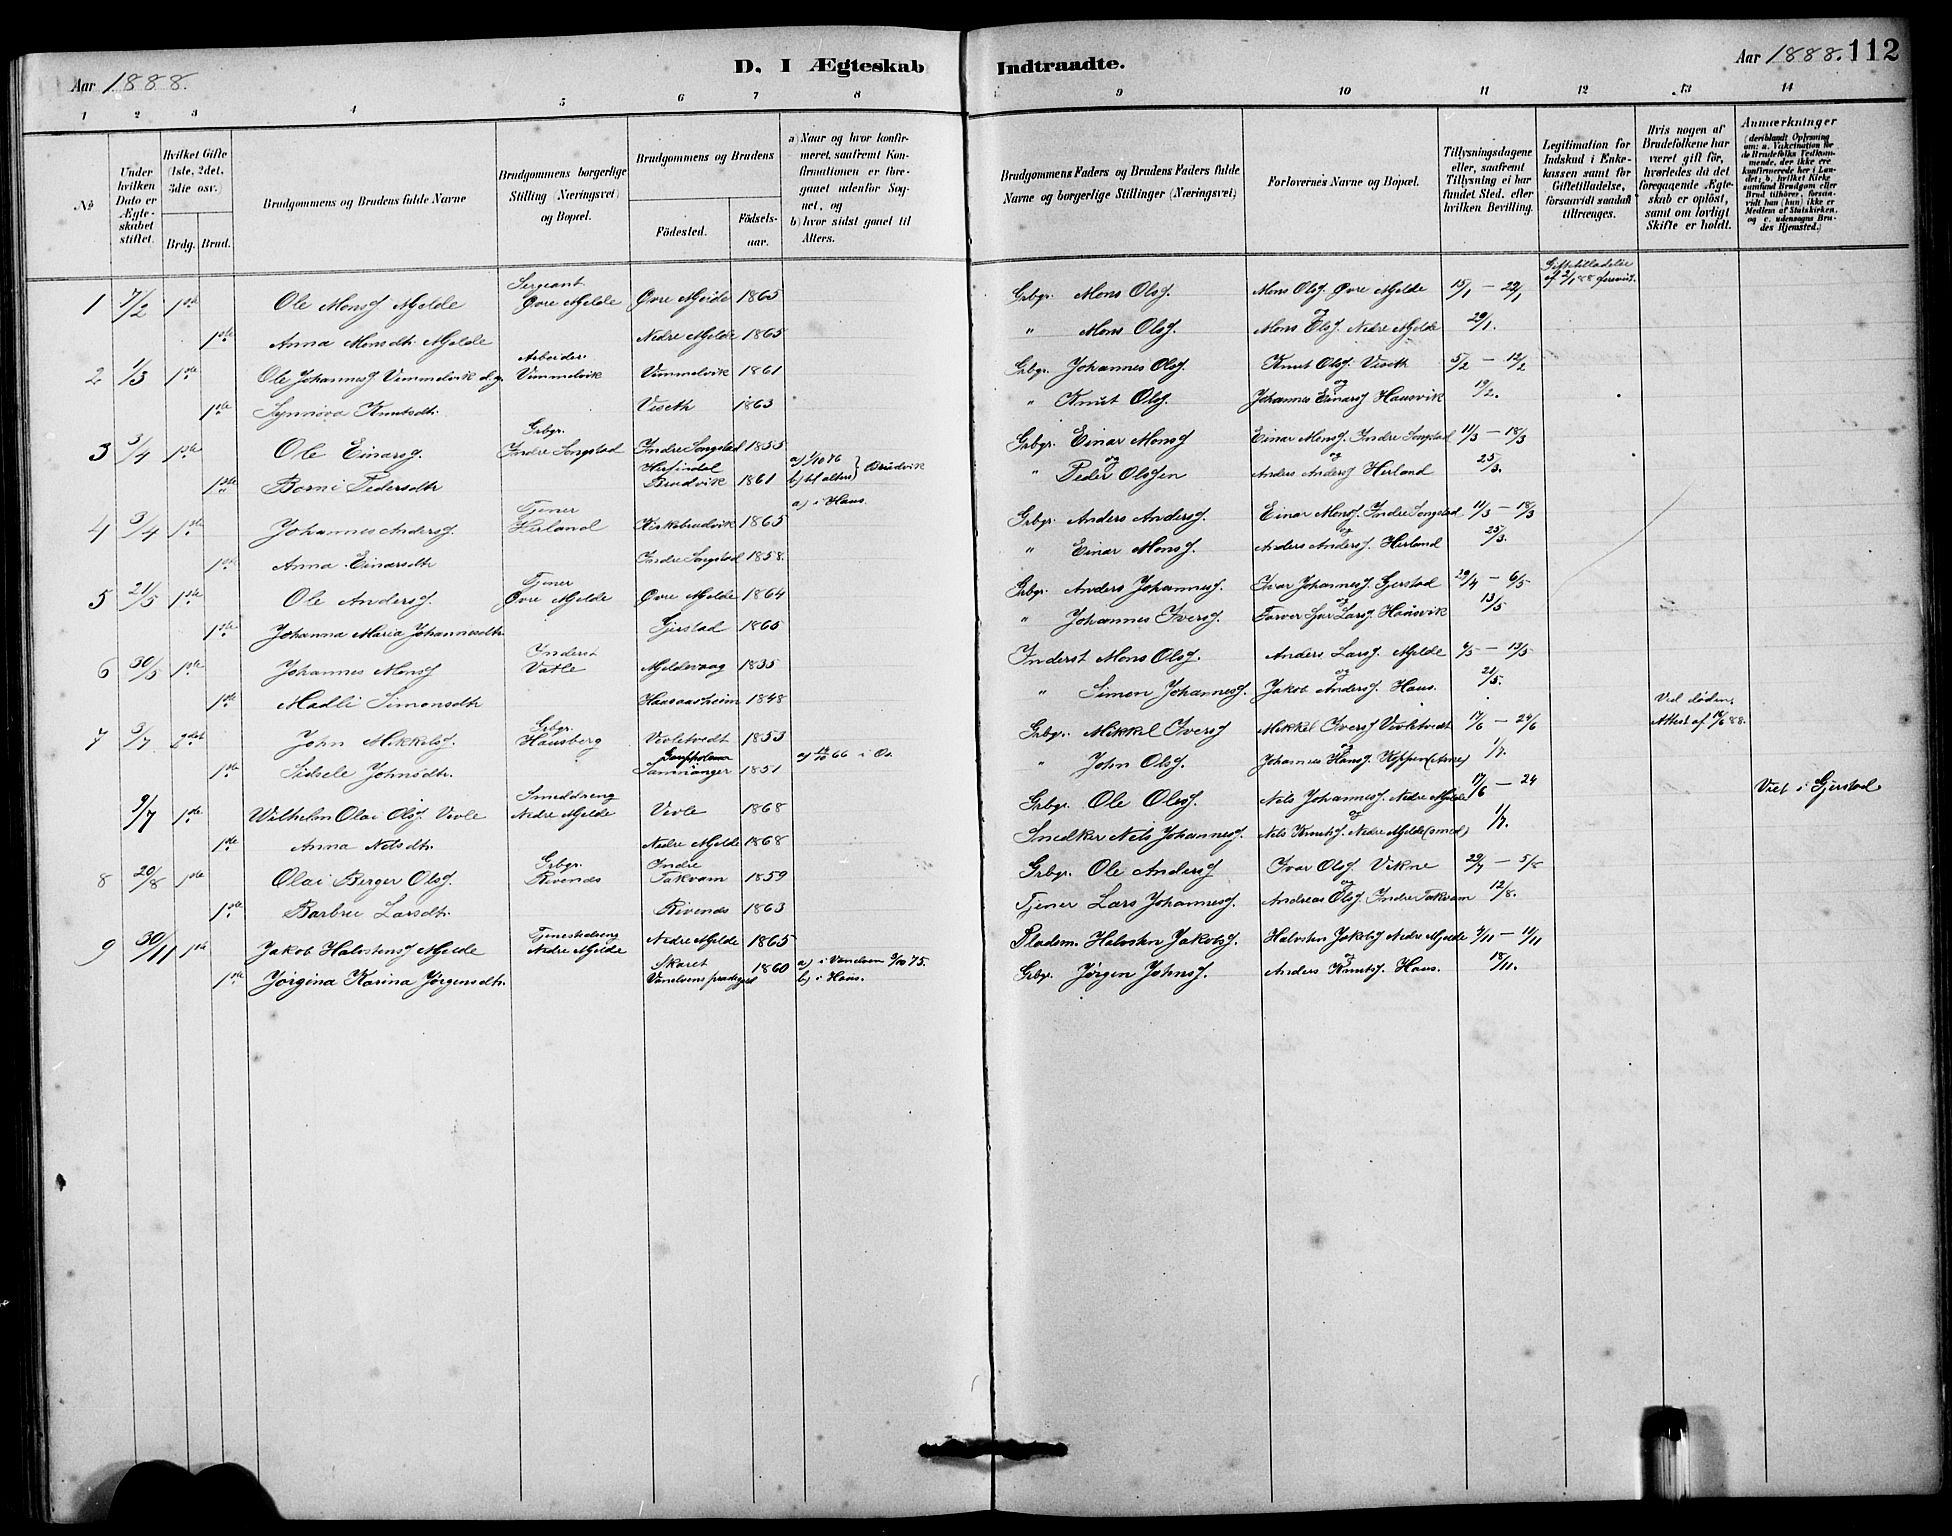 Aar 1888.
D. I Ægteskab
Indtraadte.
Aar 1888.
112
1 2 3 4 5 6 7 8
9 10 11 12 13 14
No
Under hvilken Dato er Ægteskabet stiftet.
Hvilket Gifte (1ste, 2det, 3die osv.)
Brdg. Brud.
Brudgommens og Brudens fulde Navne
Brudgommens borgerlige Stilling (Næringsvei) og Bopæl.
Brudgommens og Brudens
Födested. Födselsaar.
a) Naar og hvor konfirmeret, saafremt Konfirmationen er foregaaet udenfor Sognet, og
b) hvor sidst gaaet til Alters.
Brudgommens Faders og Brudens Faders fulde Navne og borgerlige Stillinger (Næringsvei)
Forlovernes Navne og Bopæl.
Tillysningsdagene eller, saafremt Tillysning ei har fundet Sted, efter hvilken Bevilling.
Legitimation for Indskud i Enkekassen samt for Giftetilladelse, forsaavidt saadan tiltrænges.
Hvis nogen af Brudefolkene har været gift før, hvorledes da det foregaaende Ægteskab er oplöst, samt om lovligt Skifte er holdt.
Anmærkninger
(deriblandt Oplysning om: a. Vakcination for de Brudefolks Vedkommende, der ikke ere konfirmerede her i Landet; b. hvilket Kirkesamfund Brudgom eller Brud tilhörer, forsaavidt han (hun) ikke er Medlem af Statskirken, og c. udensogns Brudes Hjemsted.)
1 7/2 1ste Ole Monsf Mjelde Sergeant Øvre Mjelde Øvre Mjelde 1865 Grbgr. Mons Olsf. Mons Olsf. Øvre Mjelde 15/1 — 22/1 Giftetilladelse af 2/1 88 forevist.
1ste Anna Monsdtr Mjelde Nedre Mjelde 1865 " Mons Olsf. og Mons Olsf. Nedre Mjelde 29/1.
2 1/3 1ste Ole Johannesf Vimmelvik Arbeider Vimmelvik Vimmelvik 1861 Grbgr. Johannes Olsf Knut Olsf. Viseth 5/2 — 12/2
1ste Synnöva Knutsdtr. Viseth 1863 " Knut Olsf. og Johannes Einarsf Hausvik 19/2.
3 3/4 1ste Ole Einarsf. Grbgr. Indre Songstad Indre Songstad 1855 Grbgr. Einar Monsf Einar Monsf. Indre Songstad 11/3 — 18/3
1ste Borni Pedersdtr Brudvik 1861 a) 1/10 76 b) til alters } Brudvik " Peder Olssen og Anders Andersf Herland 25/3.
4 3/4 1ste Johannes Andersf. Tjener Herland Kirkebrudvik 1865 a) i Haus. Grbgr. Anders Andersf. Einar Monsf. Indre Songstad 11/3 — 18/3
1ste Anna Einarsdtr Indre Songstad 1858. " Einar Monsf. og Anders Andersf. Herland 25/3.
5 21/5 1ste Ole Andersf. Tjener Øvre Mjelde Øvre Mjelde 1864 Grbgr. Anders Johannesf. Ivar Johannesf. Gjerstad 29/4 — 6/5
1ste Johanna Maria Johannesdtr. Gjerstad 1865 " Johannes Iversf. og Farver Lars. Hausvik 13/5
6 30/5 1ste Johannes Monsf Inderst Vatle Mjeldevaag 1835 Inderst Mons Olsf. Anders Larsf. Mjelde 6/5 — 13/5
1ste Madli Simonsdtr Hausaasheim 1848 " Simon Johannesf. og Jakob Andersf. Haus. 21/5.
7 3/7 2det John Mikkelsf. Grbgr. Hausberg Vivletvedt 1853 Grbgr. Mikkel Iversf Mikkel Iversf Vivletvedt 17/6 — 24/6 Ved döden, Attest af 16/6 88.
1ste Sidsele Johnsdtr. Samnanger 1851 a) 14/10 66 i Os. " John Olsf. og Johannes Hansf. (Arne) 1/7.
9/7 1ste Wilhelm Olai Olsf Vivle Smeddreng Nedre Mjelde Vivle 1868 Grbgr. Ole Olesf. Nils Johannesf. Nedre Mjelde 17/6 — 24 Viet i Gjerstad
1ste Anna Nilsdtr. Nedre Mjelde 1868 Snedker Nils Johannesf. og Nils Knutsf. Nedre Mjelde (smed) 1/7.
8 20/8 1ste Olai Berger Olsf. Grbgr. Rivenes Indre Takvam 1859 Grbgr. Ole Andersf Ivar Olsf. Vikne 29/7 — 5/8
1ste Barbru Larsdtr. Rivenes 1863 Tjener Lars Johannesf. og Andreas Olsf. Indre Takvam 12/8.
9 30/11 1ste Jakob Halvstensf Mjelde Tjenestedreng Nedre Mjelde Nedre Mjelde 1865 Pladsm. Halvsten Jakobsf. Halvsten Jakobsf Nedre Mjelde 4/11 — 11/11
1ste Jörgina Karina Jörgensdtr. Skaret Vanelvens prædgjeld 1860 a) i Vanelven 3/10 75. b) i Haus. Grbgr. Jörgen Johnsf. og Anders Knutsf. Haus. 18/11.